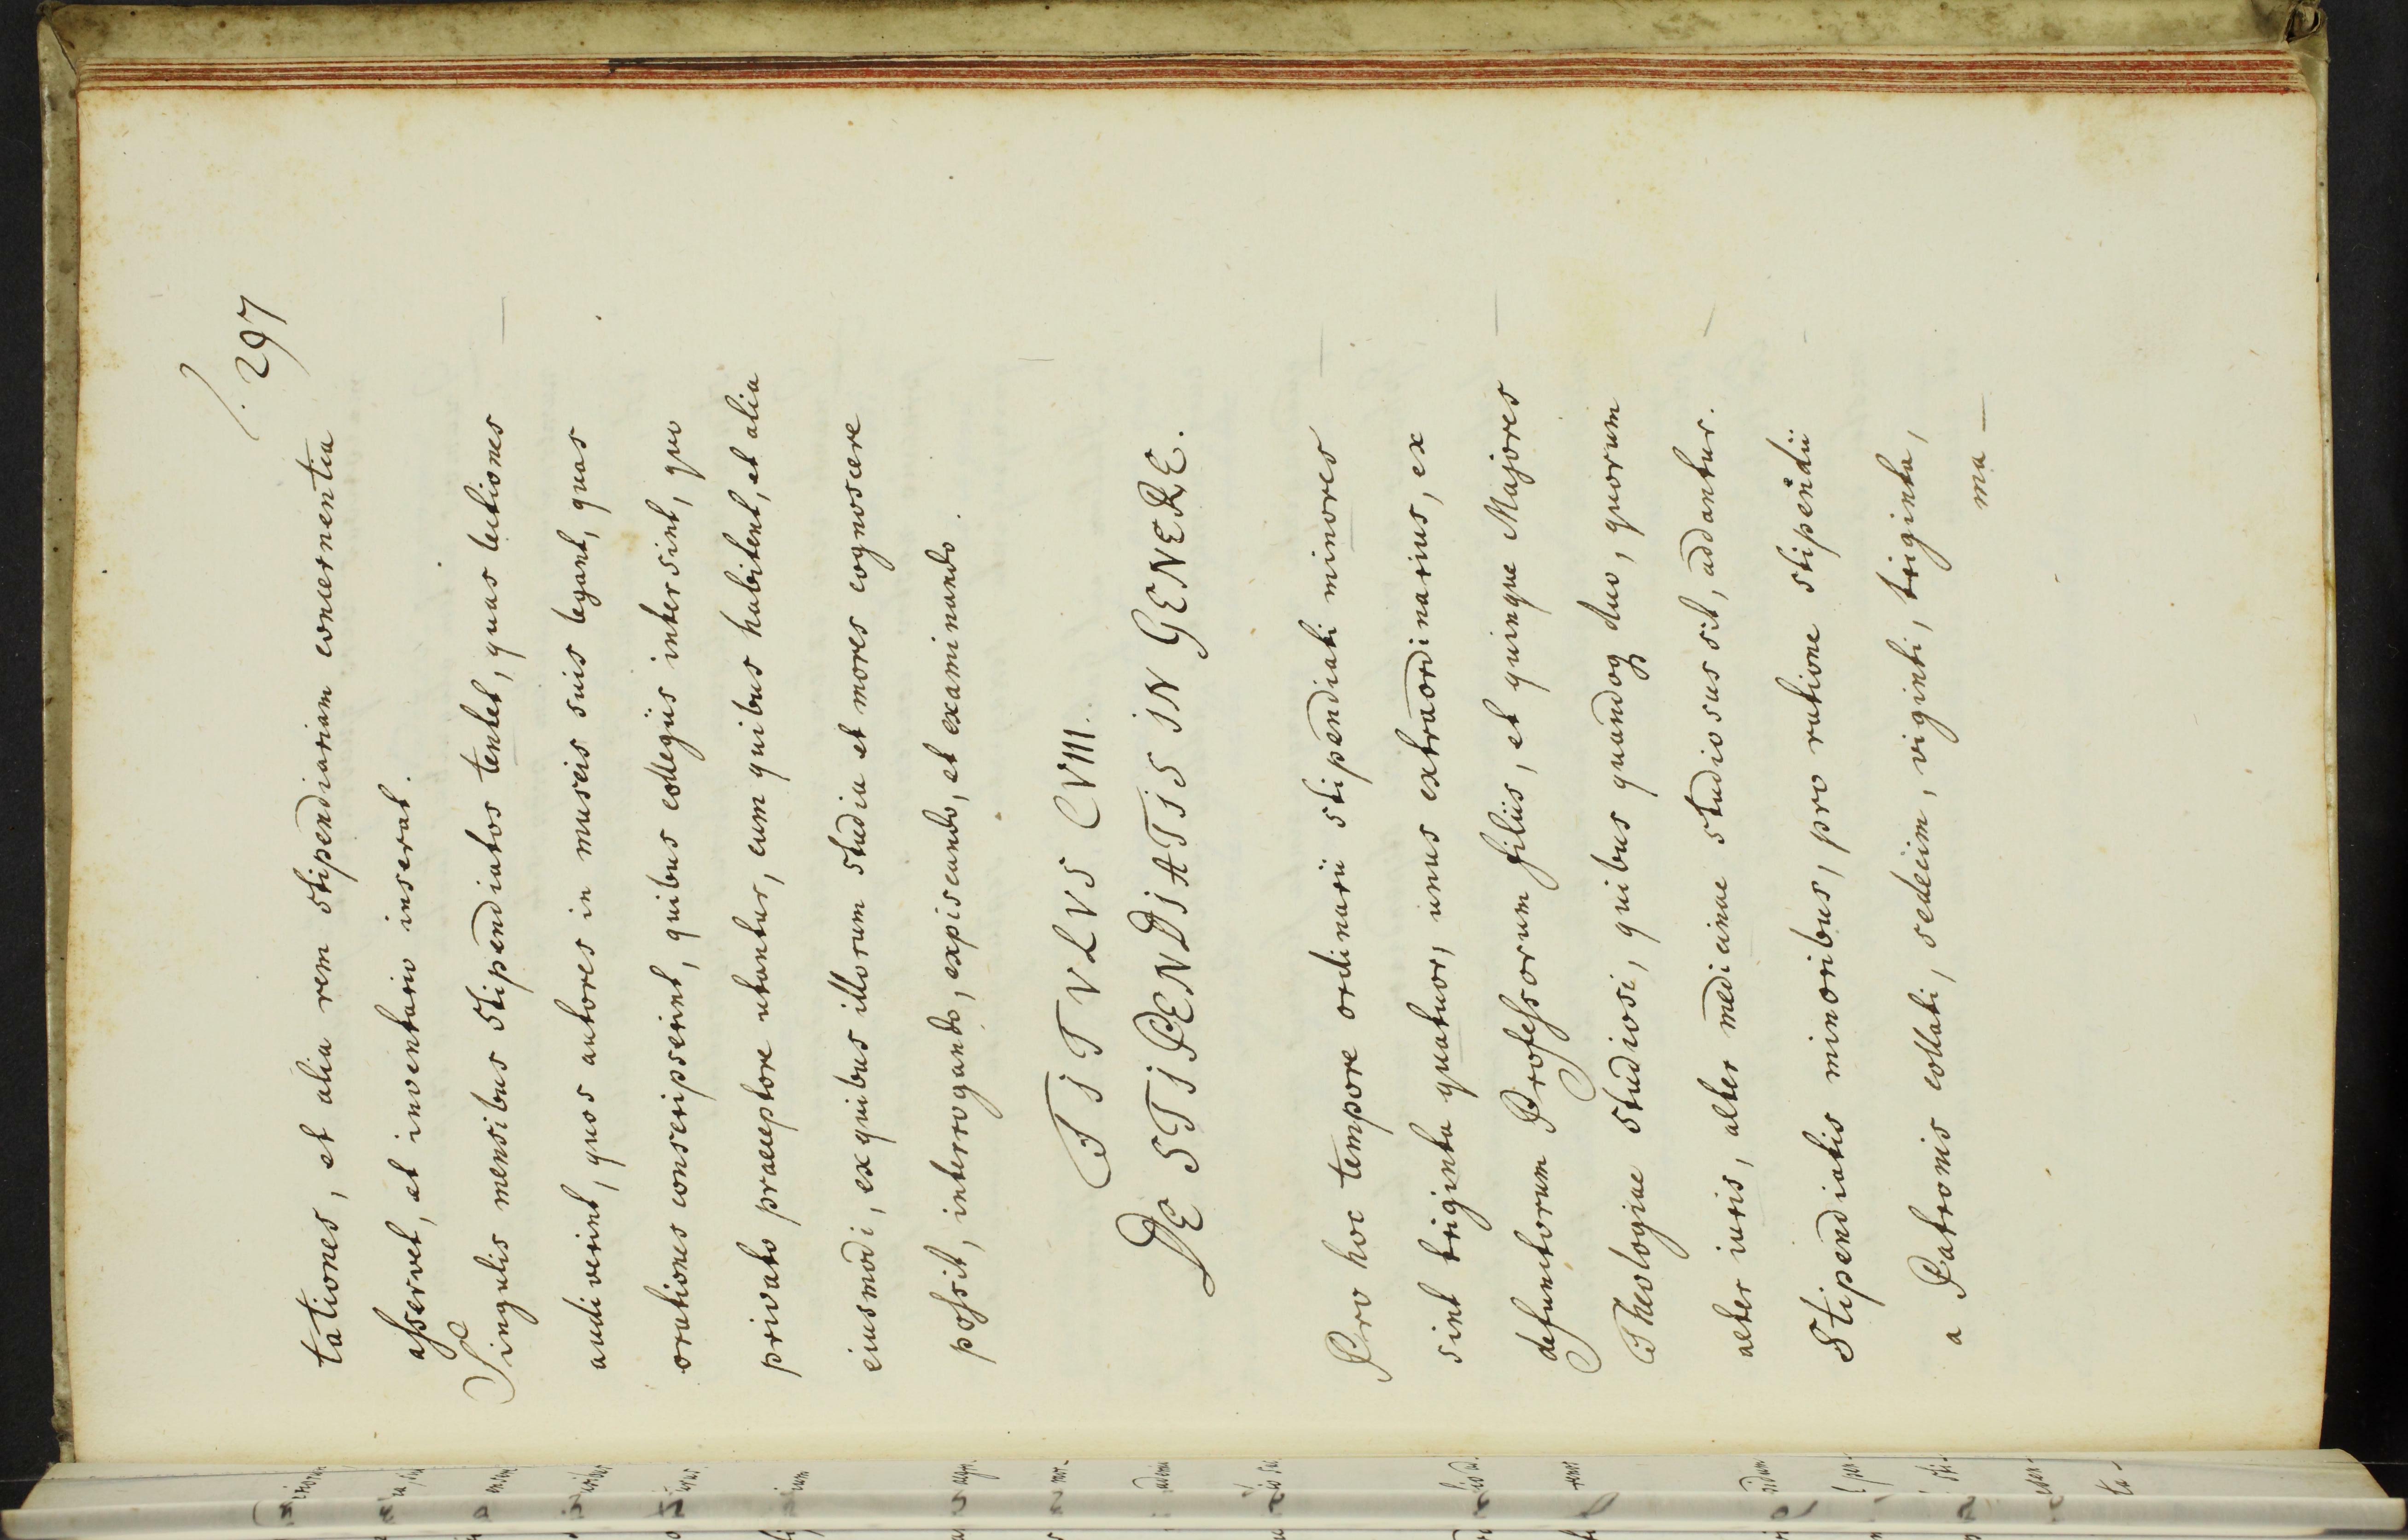 297
tationes, et alia rem stipendiariam concernentia
asservet, et inventario inserat.
Singulis mensibus stipendiatos tentet, quas lectiones
audiverint, quos autores in museis suis legant, quas
orationes conscripserint, quibus collegiis intersint, quo
privato praeceptore utantur, cum quibus habitent, et alia
eiusmodi, ex quibus illorum studia et mores cognoscere
possit, interrogando, expiscando, et examinando.
TITVLVS CVIII.
DE STIPENDIATIS IN GENERE.
Pro hoc tempore ordinarii stipendiati minores
sint triginta quatuor, unus extraordinarius, ex
defunctorum Professorum filiis, et quinque Majores
Theologiae studiosi, quibus quandoq duo, quorum
alter iuris, alter medicinae studiosus sit, addantur.
Stipendiatis minoribus, pro ratione stipendii
a Patronis collati, sedecim, viginti, triginta,
ma-